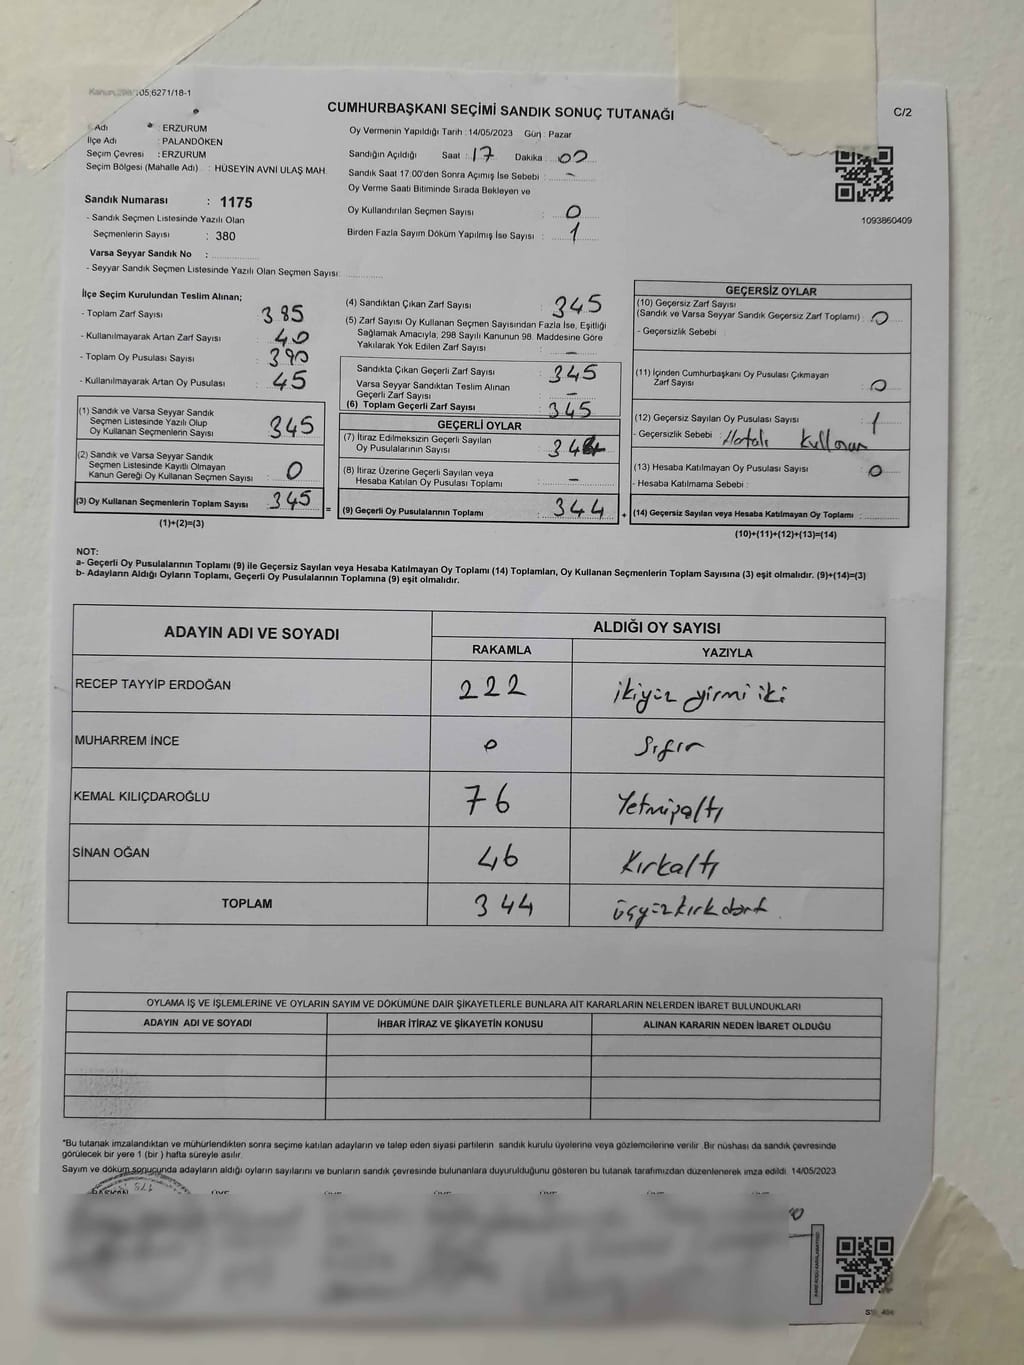 CUMHURBAŞKANI SEÇİMİ SANDIK SONUÇ TUTANAĞI
C/2
Adı : ERZURUM
İlçe Adı : PALANDÖKEN
Seçim Çevresi : ERZURUM
Seçim Bölgesi (Mahalle Adı) : HÜSEYİN AVNİ ULAŞ MAH.
Sandık Numarası : 1175
- Sandık Seçmen Listesinde Yazılı Olan
Seçmenlerin Sayısı : 380
Varsa Seyyar Sandık No :
- Seyyar Sandık Seçmen Listesinde Yazılı Olan Seçmen Sayısı:
Oy Vermenin Yapıldığı Tarih : 14/05/2023 Gün : Pazar
Sandığın Açıldığı Saat : 17 Dakika : 00
Sandık Saat 17.00'den Sonra Açımış İse Sebebi : -
Oy Verme Saati Bitiminde Sırada Bekleyen ve
Oy Kullandırılan Seçmen Sayısı : 0
Birden Fazla Sayım Döküm Yapılmış İse Sayısı : 1
1093860409
İlçe Seçim Kurulundan Teslim Alınan;
- Toplam Zarf Sayısı : 385
- Kullanılmayarak Artan Zarf Sayısı : 40
- Toplam Oy Pusulası Sayısı : 390
- Kullanılmayarak Artan Oy Pusulası : 45
(1) Sandık ve Varsa Seyyar Sandık
Seçmen Listesinde Yazılı Olup
Oy Kullanan Seçmenlerin Sayısı : 345
(2) Sandık ve Varsa Seyyar Sandık
Seçmen Listesinde Kayıtlı Olmayan
Kanun Gereği Oy Kullanan Seçmen Sayısı : 0
(3) Oy Kullanan Seçmenlerin Toplam Sayısı : 345
(1)+(2)=(3)
(4) Sandıktan Çıkan Zarf Sayısı : 345
(5) Zarf Sayısı Oy Kullanan Seçmen Sayısından Fazla İse, Eşitliği
Sağlamak Amacıyla, 298 Sayılı Kanunun 98. Maddesine Göre
Yakılarak Yok Edilen Zarf Sayısı : -
Sandıkta Çıkan Geçerli Zarf Sayısı : 345
Varsa Seyyar Sandıktan Teslim Alınan
Geçerli Zarf Sayısı : -
(6) Toplam Geçerli Zarf Sayısı : 345
GEÇERLİ OYLAR
(7) İtiraz Edilmeksizin Geçerli Sayılan
Oy Pusulalarının Sayısı : 344
(8) İtiraz Üzerine Geçerli Sayılan veya
Hesaba Katılan Oy Pusulası Toplamı : -
= (9) Geçerli Oy Pusulalarının Toplamı : 344
GEÇERSİZ OYLAR
(10) Geçersiz Zarf Sayısı
(Sandık ve Varsa Seyyar Sandık Geçersiz Zarf Toplamı) : 0
- Geçersizlik Sebebi :
(11) İçinden Cumhurbaşkanı Oy Pusulası Çıkmayan
Zarf Sayısı : 0
(12) Geçersiz Sayılan Oy Pusulası Sayısı : 1
- Geçersizlik Sebebi : Hatalı
(13) Hesaba Katılmayan Oy Pusulası Sayısı : 0
- Hesaba Katılmama Sebebi :
+ (14) Geçersiz Sayılan veya Hesaba Katılmayan Oy Toplamı :
(10)+(11)+(12)+(13)=(14)
NOT:
a- Geçerli Oy Pusulalarının Toplamı (9) ile Geçersiz Sayılan veya Hesaba Katılmayan Oy Toplamı (14) Toplamları, Oy Kullanan Seçmenlerin Toplam Sayısına (3) eşit olmalıdır. (9)+(14)=(3)
b- Adayların Aldığı Oyların Toplamı, Geçerli Oy Pusulalarının Toplamına (9) eşit olmalıdır.
ADAYIN ADI VE SOYADI
ALDIĞI OY SAYISI
RAKAMLA YAZIYLA
RECEP TAYYİP ERDOĞAN 222 ikiyüz yirmi iki
MUHARREM İNCE 0 Sıfır
KEMAL KILIÇDAROĞLU 76 Yetmişaltı
SİNAN OĞAN 46 Kırkaltı
TOPLAM 344 üçyüzkırkdört
OYLAMA İŞ VE İŞLEMLERİNE VE OYLARIN SAYIM VE DÖKÜMÜNE DAİR ŞİKAYETLERLE BUNLARA AİT KARARLARIN NELERDEN İBARET BULUNDUKLARI
ADAYIN ADI VE SOYADI İHBAR İTİRAZ VE ŞİKAYETİN KONUSU ALINAN KARARIN NEDEN İBARET OLDUĞU
*Bu tutanak imzalandıktan ve mühürlendikten sonra seçime katılan adayların ve talep eden siyasi partilerin sandık kurulu üyelerine veya gözlemcilerine verilir. Bir nüshası da sandık çevresinde
görülecek bir yere 1 (bir) hafta süreyle asılır.
Sayım ve döküm sonucunda adayların aldığı oyların sayılarını ve bunların sandık çevresinde bulunanlara duyurulduğunu gösteren bu tutanak tarafımızdan düzenlenerek imza edildi. 14/05/2023